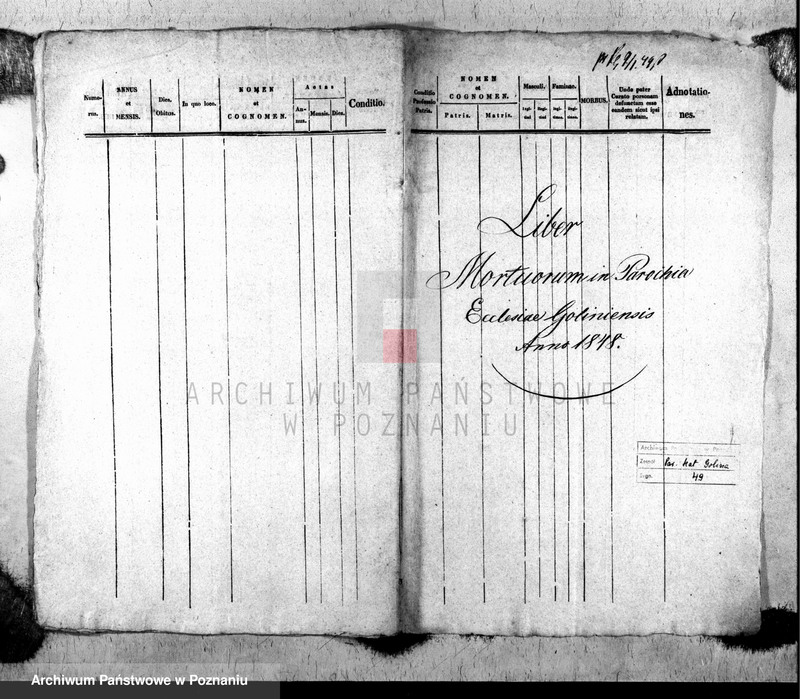 Nume-
rus.
et
MENSIS.
Dies.
Obitus.
In quo loco.
NOMEN
et
COGNOMEN.
Aetas
An-
nus.
Mensis.
Dies.
Conditio.
Conditio
Professio
Patris.
NOMEN
et
COGNOMEN.
Patris.
Matris.
Masculi.
Feminae.
MORBUS.
Unde patet
Curato personam
defunctam esse
eandem sicut ipsi
relatam.
Adnotatio-
nes.
Liber
Mortuorum in Parochia
Ecclesiae Goliniensis
Anno 1848.
ARCHIWUM PAŃSTWOWE
W POZNANIU
Par. Kat Golina
49
Archiwum Państwowe w Poznaniu